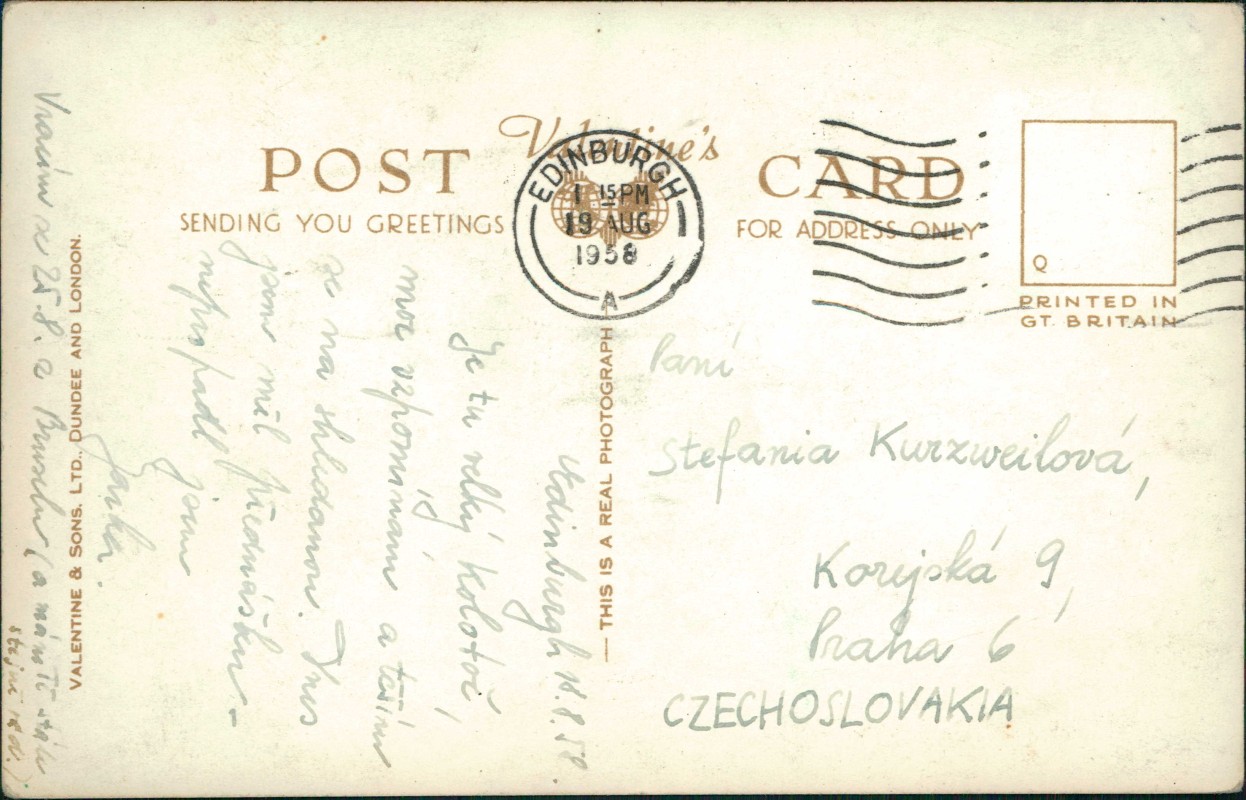 Valentine's
POST CARD
SENDING YOU GREETINGS
FOR ADDRESS ONLY
EDINBURGH
1 15 PM
19 AUG
1958
A
Q
PRINTED IN
GT. BRITAIN
— THIS IS A REAL PHOTOGRAPH —
VALENTINE & SONS. LTD., DUNDEE AND LONDON.
Edinburgh 18.8.58
Je tu velký kolotoč,
moc vzpomínám a těším
se na shledanou. Dnes
jsem měl přednášku -
jsem
Jarka.
Vracím se 25.8. z Bruselu (a mám Tě stále
stejně rád.)
Paní
Stefania Kurzweilová,
Korejská 9,
Praha 6
CZECHOSLOVAKIA